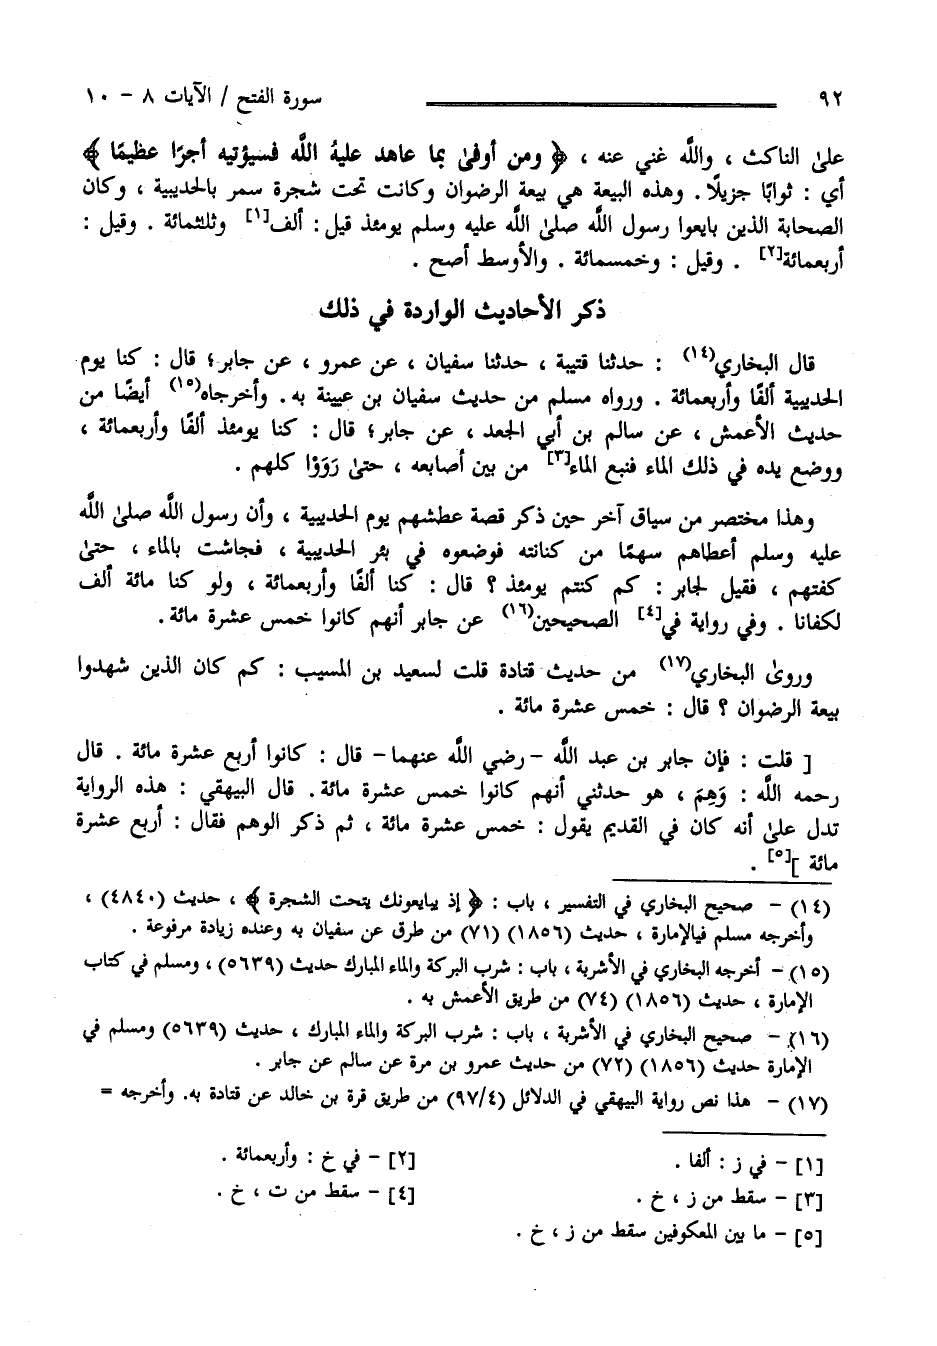 ٩٢ سورة الفتح / الآيات ٨ - ١٠
على الناكث ، واللَّه غني عنه ، ﴿ ومن أوفى بما عاهد عليهُ اللَّه فسيؤتيه أجرًا عظيمًا ﴾
أي : ثوابًا جزيلًا . وهذه البيعة هي بيعة الرضوان وكانت تحت شجرة سمر بالحديبية ، وكان
الصحابة الذين بايعوا رسول اللَّه صلى اللَّه عليه وسلم يومئذ قيل : ألف[١] وثلثمائة . وقيل :
أربعمائة[٢] . وقيل : وخمسمائة . والأوسط أصح .
ذكر الأحاديث الواردة في ذلك
قال البخاري(١٤) : حدثنا قتيبة ، حدثنا سفيان ، عن عمرو ، عن جابر ؛ قال : كنا يوم
الحديبية ألفًا وأربعمائة . ورواه مسلم من حديث سفيان بن عيينة به . وأخرجاه(١٥) أيضًا من
حديث الأعمش ، عن سالم بن أبي الجعد ، عن جابر ؛ قال : كنا يومئذ ألفًا وأربعمائة ،
ووضع يده في ذلك الماء فنبع الماء[٣] من بين أصابعه ، حتى رَوَوْا كلهم .
وهذا مختصر من سياق آخر حين ذكر قصة عطشهم يوم الحديبية ، وأن رسول اللَّه صلى اللَّه
عليه وسلم أعطاهم سهمًا من كنانته فوضعوه في بئر الحديبية ، فجاشت بالماء ، حتى
كفتهم ، فقيل لجابر : كم كنتم يومئذ ؟ قال : كنا ألفًا وأربعمائة ، ولو كنا مائة ألف
لكفانا . وفي رواية في[٤] الصحيحين(١٦) عن جابر أنهم كانوا خمس عشرة مائة .
وروى البخاري(١٧) من حديث قتادة قلت لسعيد بن المسيب : كم كان الذين شهدوا
بيعة الرضوان ؟ قال : خمس عشرة مائة .
[ قلت : فإن جابر بن عبد اللَّه - رضي اللَّه عنهما - قال : كانوا أربع عشرة مائة . قال
رحمه اللَّه : وَهِمَ ، هو حدثني أنهم كانوا خمس عشرة مائة . قال البيهقي : هذه الرواية
تدل على أنه كان في القديم يقول : خمس عشرة مائة ، ثم ذكر الوهم فقال : أربع عشرة
مائة ][٥] .
(١٤) - صحيح البخاري في التفسير ، باب : ﴿ إذ يبايعونك يتحت الشجرة ﴾ ، حديث (٤٨٤٠) ،
وأخرجه مسلم فيالإمارة ، حديث (١٨٥٦) (٧١) من طرق عن سفيان به وعنده زيادة مرفوعة .
(١٥) - أخرجه البخاري في الأشربة ، باب : شرب البركة والماء المبارك حديث (٥٦٣٩) ، ومسلم في كتاب
الإمارة ، حديث (١٨٥٦) (٧٤) من طريق الأعمش به .
(١٦) - صحيح البخاري في الأشربة ، باب : شرب البركة والماء المبارك ، حديث (٥٦٣٩) ومسلم في
الإمارة حديث (١٨٥٦) (٧٢) من حديث عمرو بن مرة عن سالم عن جابر .
(١٧) - هذا نص رواية البيهقي في الدلائل (٩٧/٤) من طريق قرة بن خالد عن قتادة به . وأخرجه =
[١] - في ز : ألفا . [٢] - في خ : وأربعمائة .
[٣] - سقط من ز ، خ . [٤] - سقط من ت ، خ .
[٥] - ما بين المعكوفين سقط من ز ، خ .